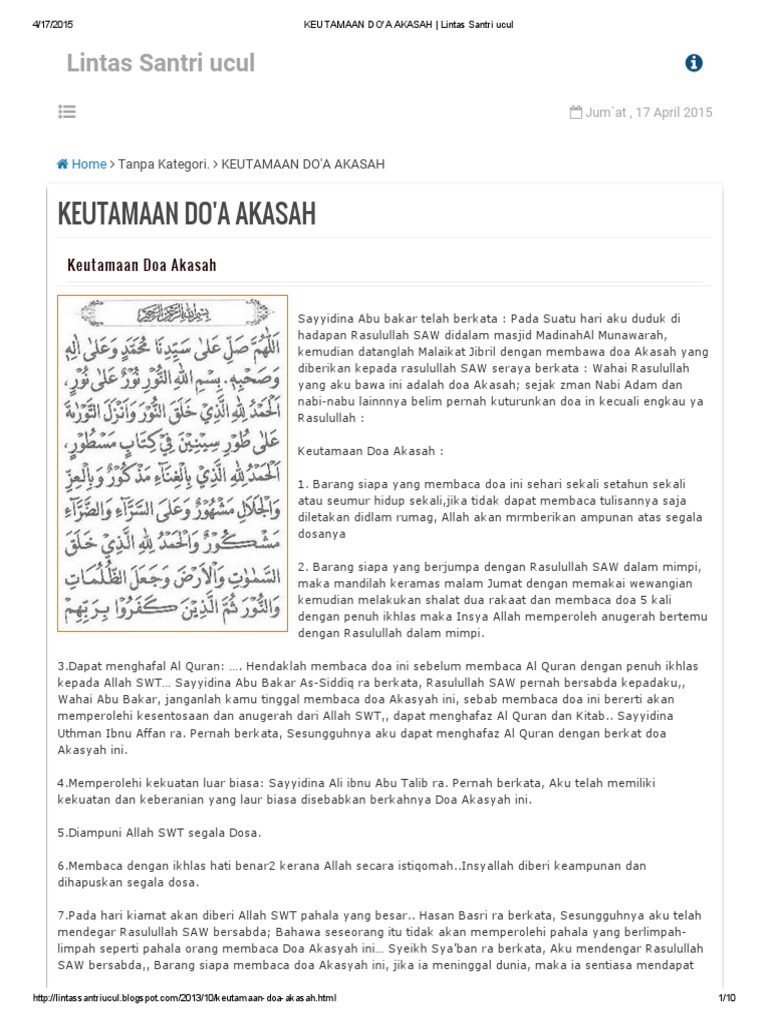 4/17/2015
KEUTAMAAN DO'A AKASAH | Lintas Santri ucul
Lintas Santri ucul
Jum´at , 17 April 2015
Home > Tanpa Kategori. > KEUTAMAAN DO'A AKASAH
KEUTAMAAN DO'A AKASAH
Keutamaan Doa Akasah
بِسْمِ اللهِ الرَّحْمٰنِ الرَّحِيْمِ
اَللّٰهُمَّ صَلِّ عَلٰى سَيِّدِنَا مُحَمَّدٍ وَعَلٰى اٰلِهِ
وَصَحْبِهِ. بِسْمِ اللهِ النُّوْرِ نُوْرٌ عَلٰى نُوْرٍ،
اَلْحَمْدُ لِلّٰهِ الَّذِيْ خَلَقَ النُّوْرَ وَاَنْزَلَ التَّوْرٰىةَ
عَلٰى طُوْرِ سِيْنِيْنَ فِيْ كِتَابٍ مَسْطُوْرٍ،
اَلْحَمْدُ لِلّٰهِ الَّذِيْ بِالْغِنَاءِ مَذْكُوْرٌ وَبِالْعِزِّ
وَالْجَلَالِ مَشْهُوْرٌ وَعَلَى السَّرَّاءِ وَالضَّرَّاءِ
مَشْكُوْرٌ وَالْحَمْدُ لِلّٰهِ الَّذِيْ خَلَقَ
السَّمٰوٰتِ وَالْاَرْضَ وَجَعَلَ الظُّلُمَاتِ
وَالنُّوْرَ ثُمَّ الَّذِيْنَ كَفَرُوْا بِرَبِّهِمْ
Sayyidina Abu bakar telah berkata : Pada Suatu hari aku duduk di
hadapan Rasulullah SAW didalam masjid MadinahAl Munawarah,
kemudian datanglah Malaikat Jibril dengan membawa doa Akasah yang
diberikan kepada rasulullah SAW seraya berkata : Wahai Rasulullah
yang aku bawa ini adalah doa Akasah; sejak zman Nabi Adam dan
nabi-nabu lainnnya belim pernah kuturunkan doa in kecuali engkau ya
Rasulullah :
Keutamaan Doa Akasah :
1. Barang siapa yang membaca doa ini sehari sekali setahun sekali
atau seumur hidup sekali,jika tidak dapat membaca tulisannya saja
diletakan didlam rumag, Allah akan mrmberikan ampunan atas segala
dosanya
2. Barang siapa yang berjumpa dengan Rasulullah SAW dalam mimpi,
maka mandilah keramas malam Jumat dengan memakai wewangian
kemudian melakukan shalat dua rakaat dan membaca doa 5 kali
dengan penuh ikhlas maka Insya Allah memperoleh anugerah bertemu
dengan Rasulullah dalam mimpi.
3.Dapat menghafal Al Quran: .... Hendaklah membaca doa ini sebelum membaca Al Quran dengan penuh ikhlas
kepada Allah SWT… Sayyidina Abu Bakar As-Siddiq ra berkata, Rasulullah SAW pernah bersabda kepadaku,,
Wahai Abu Bakar, janganlah kamu tinggal membaca doa Akasyah ini, sebab membaca doa ini bererti akan
memperolehi kesentosaan dan anugerah dari Allah SWT,, dapat menghafaz Al Quran dan Kitab.. Sayyidina
Uthman Ibnu Affan ra. Pernah berkata, Sesungguhnya aku dapat menghafaz Al Quran dengan berkat doa
Akasyah ini.
4.Memperolehi kekuatan luar biasa: Sayyidina Ali ibnu Abu Talib ra. Pernah berkata, Aku telah memiliki
kekuatan dan keberanian yang laur biasa disebabkan berkahnya Doa Akasyah ini.
5.Diampuni Allah SWT segala Dosa.
6.Membaca dengan ikhlas hati benar2 kerana Allah secara istiqomah..Insyallah diberi keampunan dan
dihapuskan segala dosa.
7.Pada hari kiamat akan diberi Allah SWT pahala yang besar.. Hasan Basri ra berkata, Sesungguhnya aku telah
mendegar Rasulullah SAW bersabda; Bahawa seseorang itu tidak akan memperolehi pahala yang berlimpah-
limpah seperti pahala orang membaca Doa Akasyah ini… Syeikh Sya'ban ra berkata, Aku mendengar Rasulullah
SAW bersabda,, Barang siapa membaca doa Akasyah ini, jika ia meninggal dunia, maka ia sentiasa mendapat
http://lintassantriucul.blogspot.com/2013/10/keutamaan-doa-akasah.html
1/10